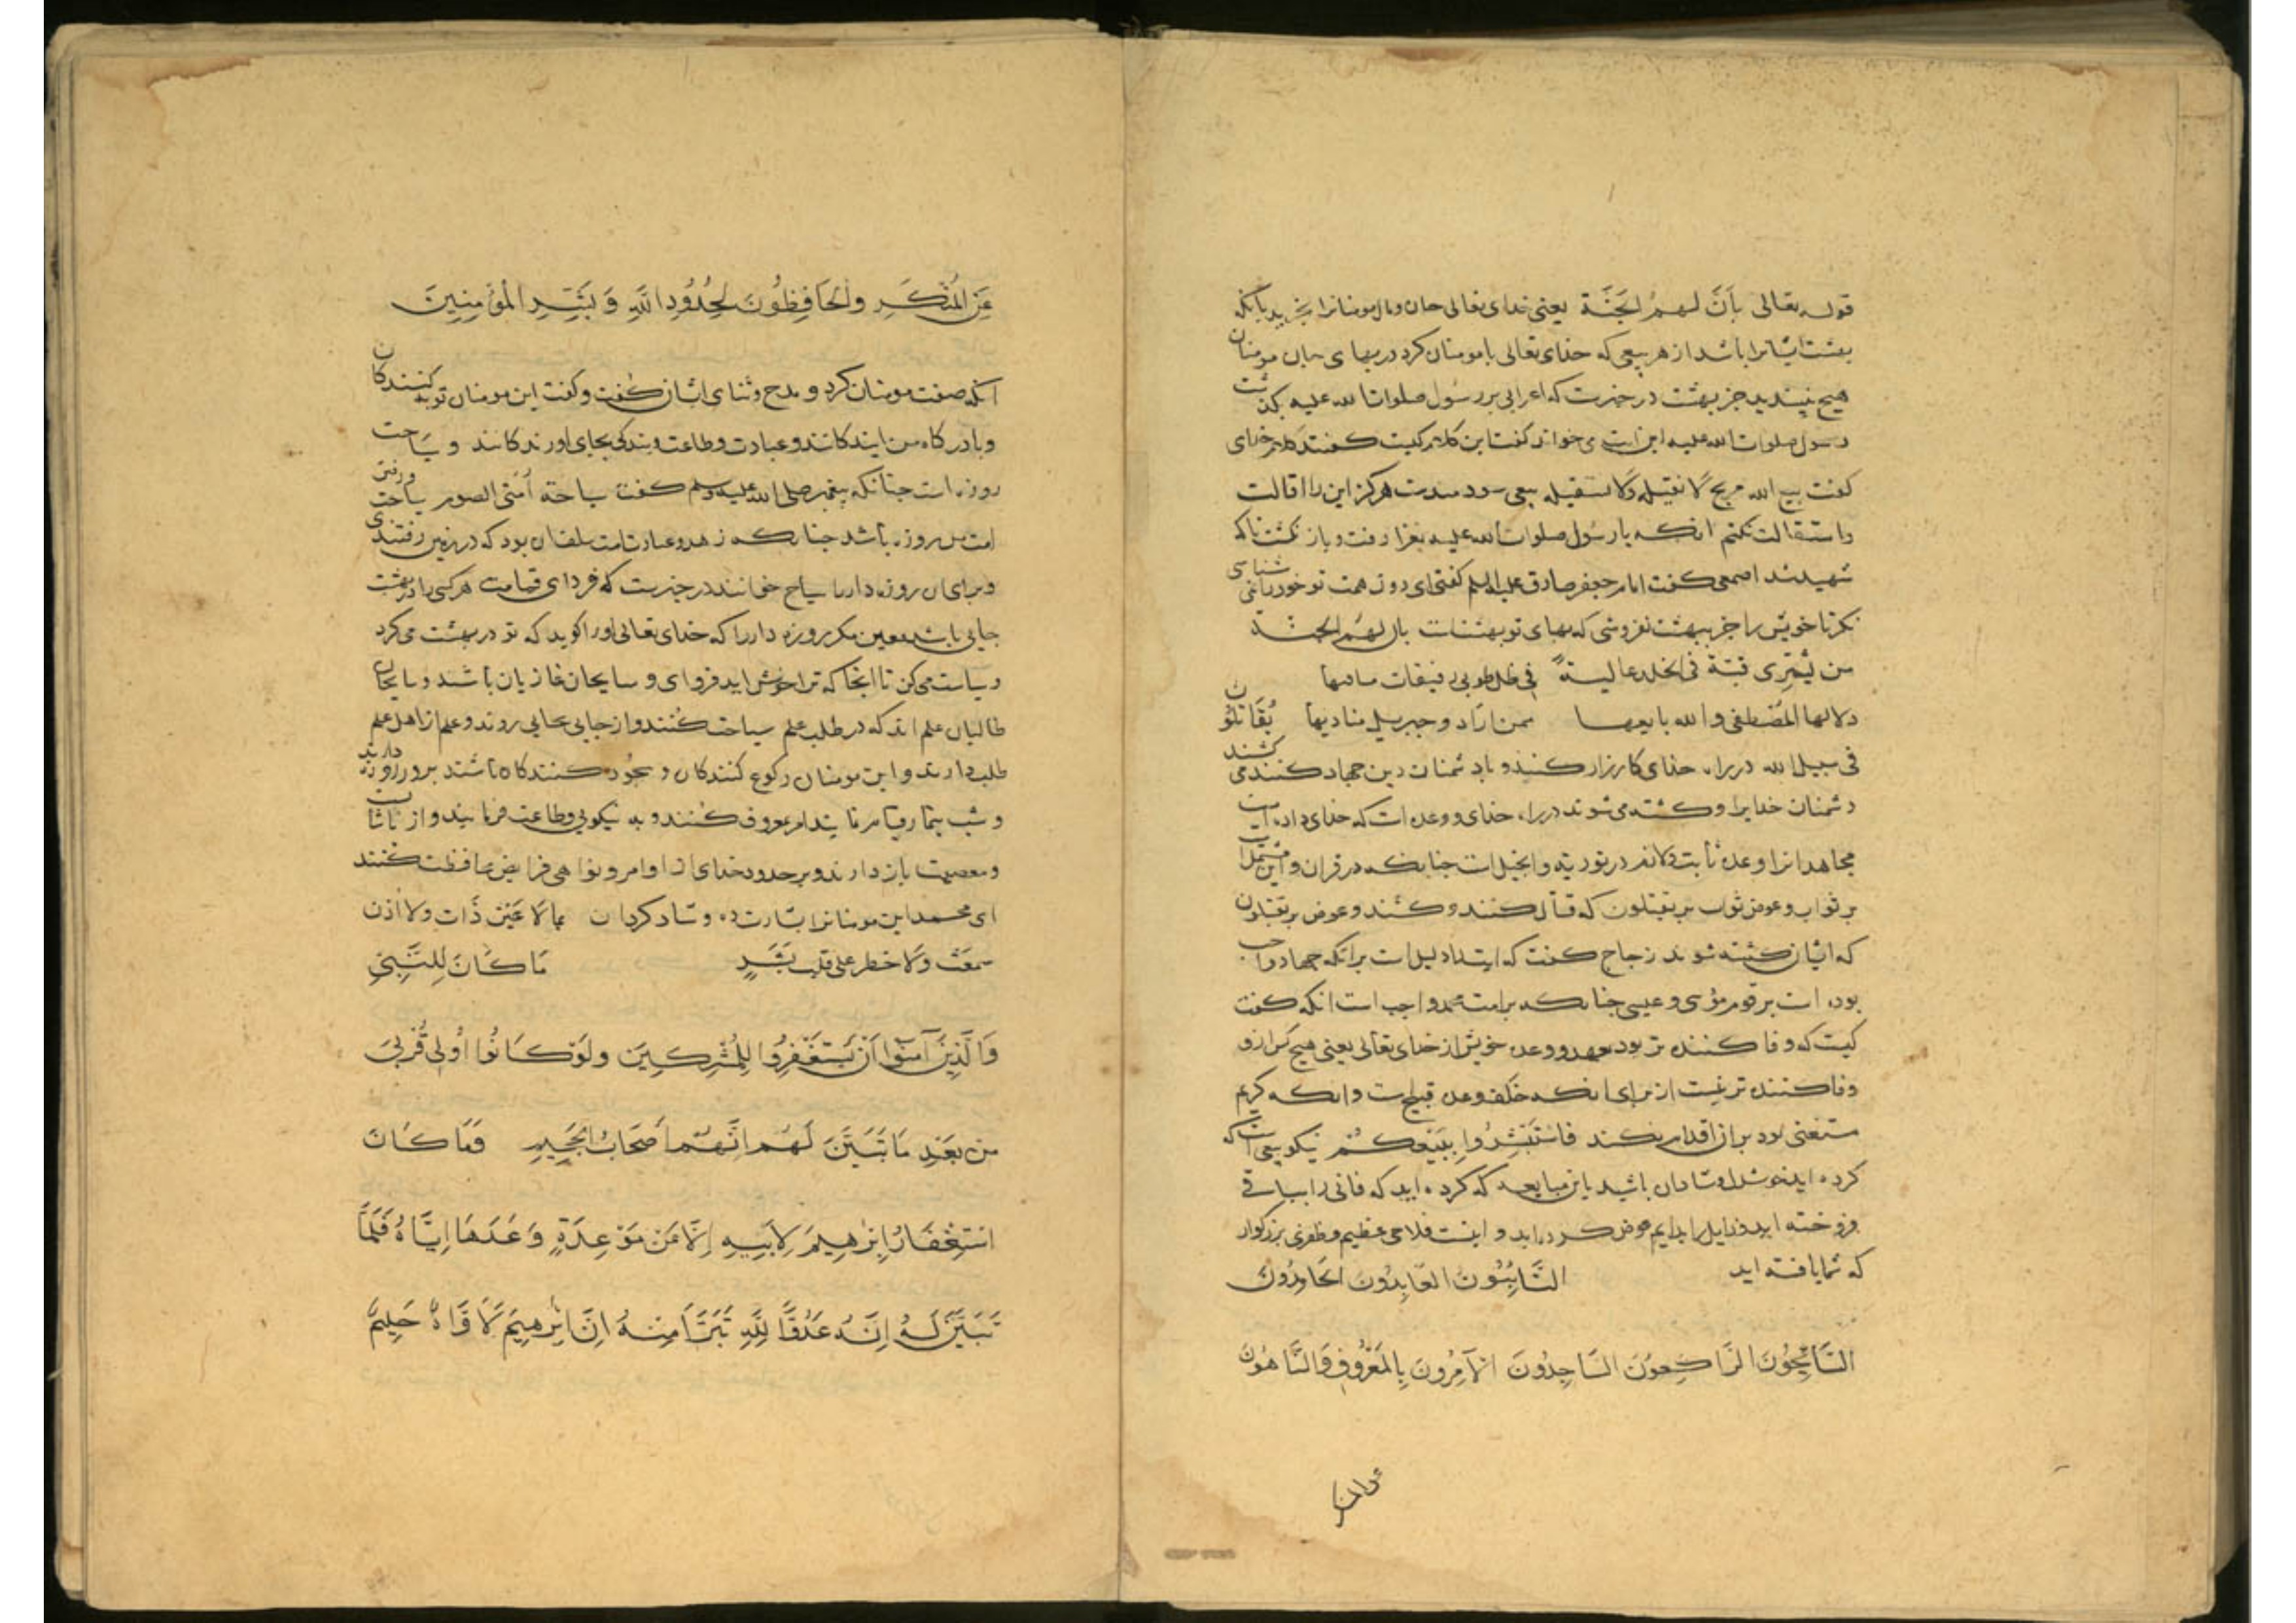 قوله تعالی بِأَنَّ لَهُمُ الجَنَّة یعنی خدای تعالی جان و مال مومنانرا بخرید بآنکه
بهشت ایشانرا باشد از هر بیعی که خدای تعالی با مومنان کرد در بهای جان مومنان
هیچ نپسندید جز بهشت در خبرست که اعرابی بر رسول صلوات الله علیه بگذشت
رسول صلوات الله علیه این ایت می خواند گفت این کلام کیست گفتند کلام خدای
گفت بیع الله مربح لا نقیله ولا نستقیله بیعی سودمندست هرگز این را اقالت
و استقالت نکنم انکه با رسول صلوات الله علیه بغزا رفت و باز نگشت تا که
شهید شد اصمعی گفت امام جعفر صادق علیه السلم گفتی ای دون همت تو خود را نمی شناسی
نگر تا خویش را جز ببهشت نفروشی که بهای تو بهشتست بان لهم الجنة
من یشتری قبة فی الخلد عالیة فی ظل طوبی رفیقات مبانیها
دلالها المصطفی والله بایعها ممن اراد و جبریل منادیها یُقَاتِلُون
فی سبیل الله در راه خدای کارزار کنند و با دشمنان دین جهاد کنند می کشند
دشمنان خدایرا و کشته می شوند در راه خدای و وعده است که خدای داده است
مجاهدانرا وعده ثابت و لازم در توریة و انجیل است چنانکه در قران و این مشتمل است
بر ثواب و عوض ثواب بر یقتلون که قتال کنند و کشند و عوض بر یقتلون
که ایشان کشته شوند زجاج گفت که ایت دلیل است برانکه جهاد واجب
بوده است بر قوم موسی و عیسی چنانکه بر امت محمد واجب است انکه گفت
کیست که وفا کننده تر بود بعهد و وعده خویش از خدای تعالی یعنی هیچ کس از و
وفا کننده تر نیست از برای انکه خلف وعده قبیح است و انکه کریم
مستغنی بود بران اقدام نکند فَاسْتَبْشِرُوا بِبَیْعِکُمْ نیکو بیعی است که
کرده اید خوشدل و شادمان باشید باین مبایعه که کرده اید که فانی را بباقی
فروخته اید و زایل را بدایم عوض کرده اید و اینست فلاحی عظیم و ظفری بزرگوار
که شما یافته اید التَّائِبُونَ العَابِدُونَ الحَامِدُونَ
السَّائِحُونَ الرَّاكِعُونَ السَّاجِدُونَ الآمِرُونَ بِالمَعْرُوفِ وَالنَّاهُونَ
عَنِ المُنْكَرِ وَالحَافِظُونَ لِحُدُودِ اللَّهِ وَبَشِّرِ المُؤْمِنِينَ
انکه صفت مومنان کرد و مدح و ثنای ایشان گفت و گفت این مومنان توبه کنندکان
و با درگاه من ایندگانند و عبادت و طاعت و بندگی بجای اورندگانند و سیاحت
روزه است چنانکه پیغمبر صلی الله علیه وسلم گفت سیاحة أمتی الصوم سیاحت و رفتن
امت من روزه باشد چنانکه زهد و عبادت امت سلفان بود که در زمین رفتندی
و برای ان روزه دار را سیاح خوانند در خبرست که فردای قیامت هر کسی را در بهشت
جایی باشد معین مگر روزه دار را که خدای تعالی او را گوید که تو در بهشت می گرد
و سیاحت می کن تا انجا که ترا خوش اید فرو ای و سایحان غازیان باشند و سایحان
طالبان علم اند که در طلب علم سیاحت کنند و از جایی بجایی روند و علم از اهل علم
طلب دارند و این مومنان رکوع کنندکان و سجود کنندکان باشند بروز روزه دارند
و شب بنماز قیام نمایند امر معروف کنند و به نیکویی و طاعت فرمایند و از ناشایست
و معصیت باز دارند و بر حدود خدای از اوامر و نواهی فرایض محافظت کنند
ای محمد این مومنانرا بشارت ده و شاد گردان بما لا عین رأت ولا اذن
سمعت ولا خطر علی قلب بشرٍ مَا كَانَ لِلنَّبِيِّ
وَالَّذِينَ آمَنُوا أَنْ يَسْتَغْفِرُوا لِلْمُشْرِكِينَ وَلَوْ كَانُوا أُولِي قُرْبَى
مِن بَعْدِ مَا تَبَيَّنَ لَهُمْ أَنَّهُمْ أَصْحَابُ الجَحِيمِ وَمَا كَانَ
اسْتِغْفَارُ إِبْرٰهِيمَ لِأَبِيهِ إِلَّا عَنْ مَوْعِدَةٍ وَعَدَهَا إِيَّاهُ فَلَمَّا
تَبَيَّنَ لَهُ أَنَّهُ عَدُوٌّ لِلَّهِ تَبَرَّأَ مِنْهُ إِنَّ إِبْرٰهِيمَ لَأَوَّاهٌ حَلِيمٌ